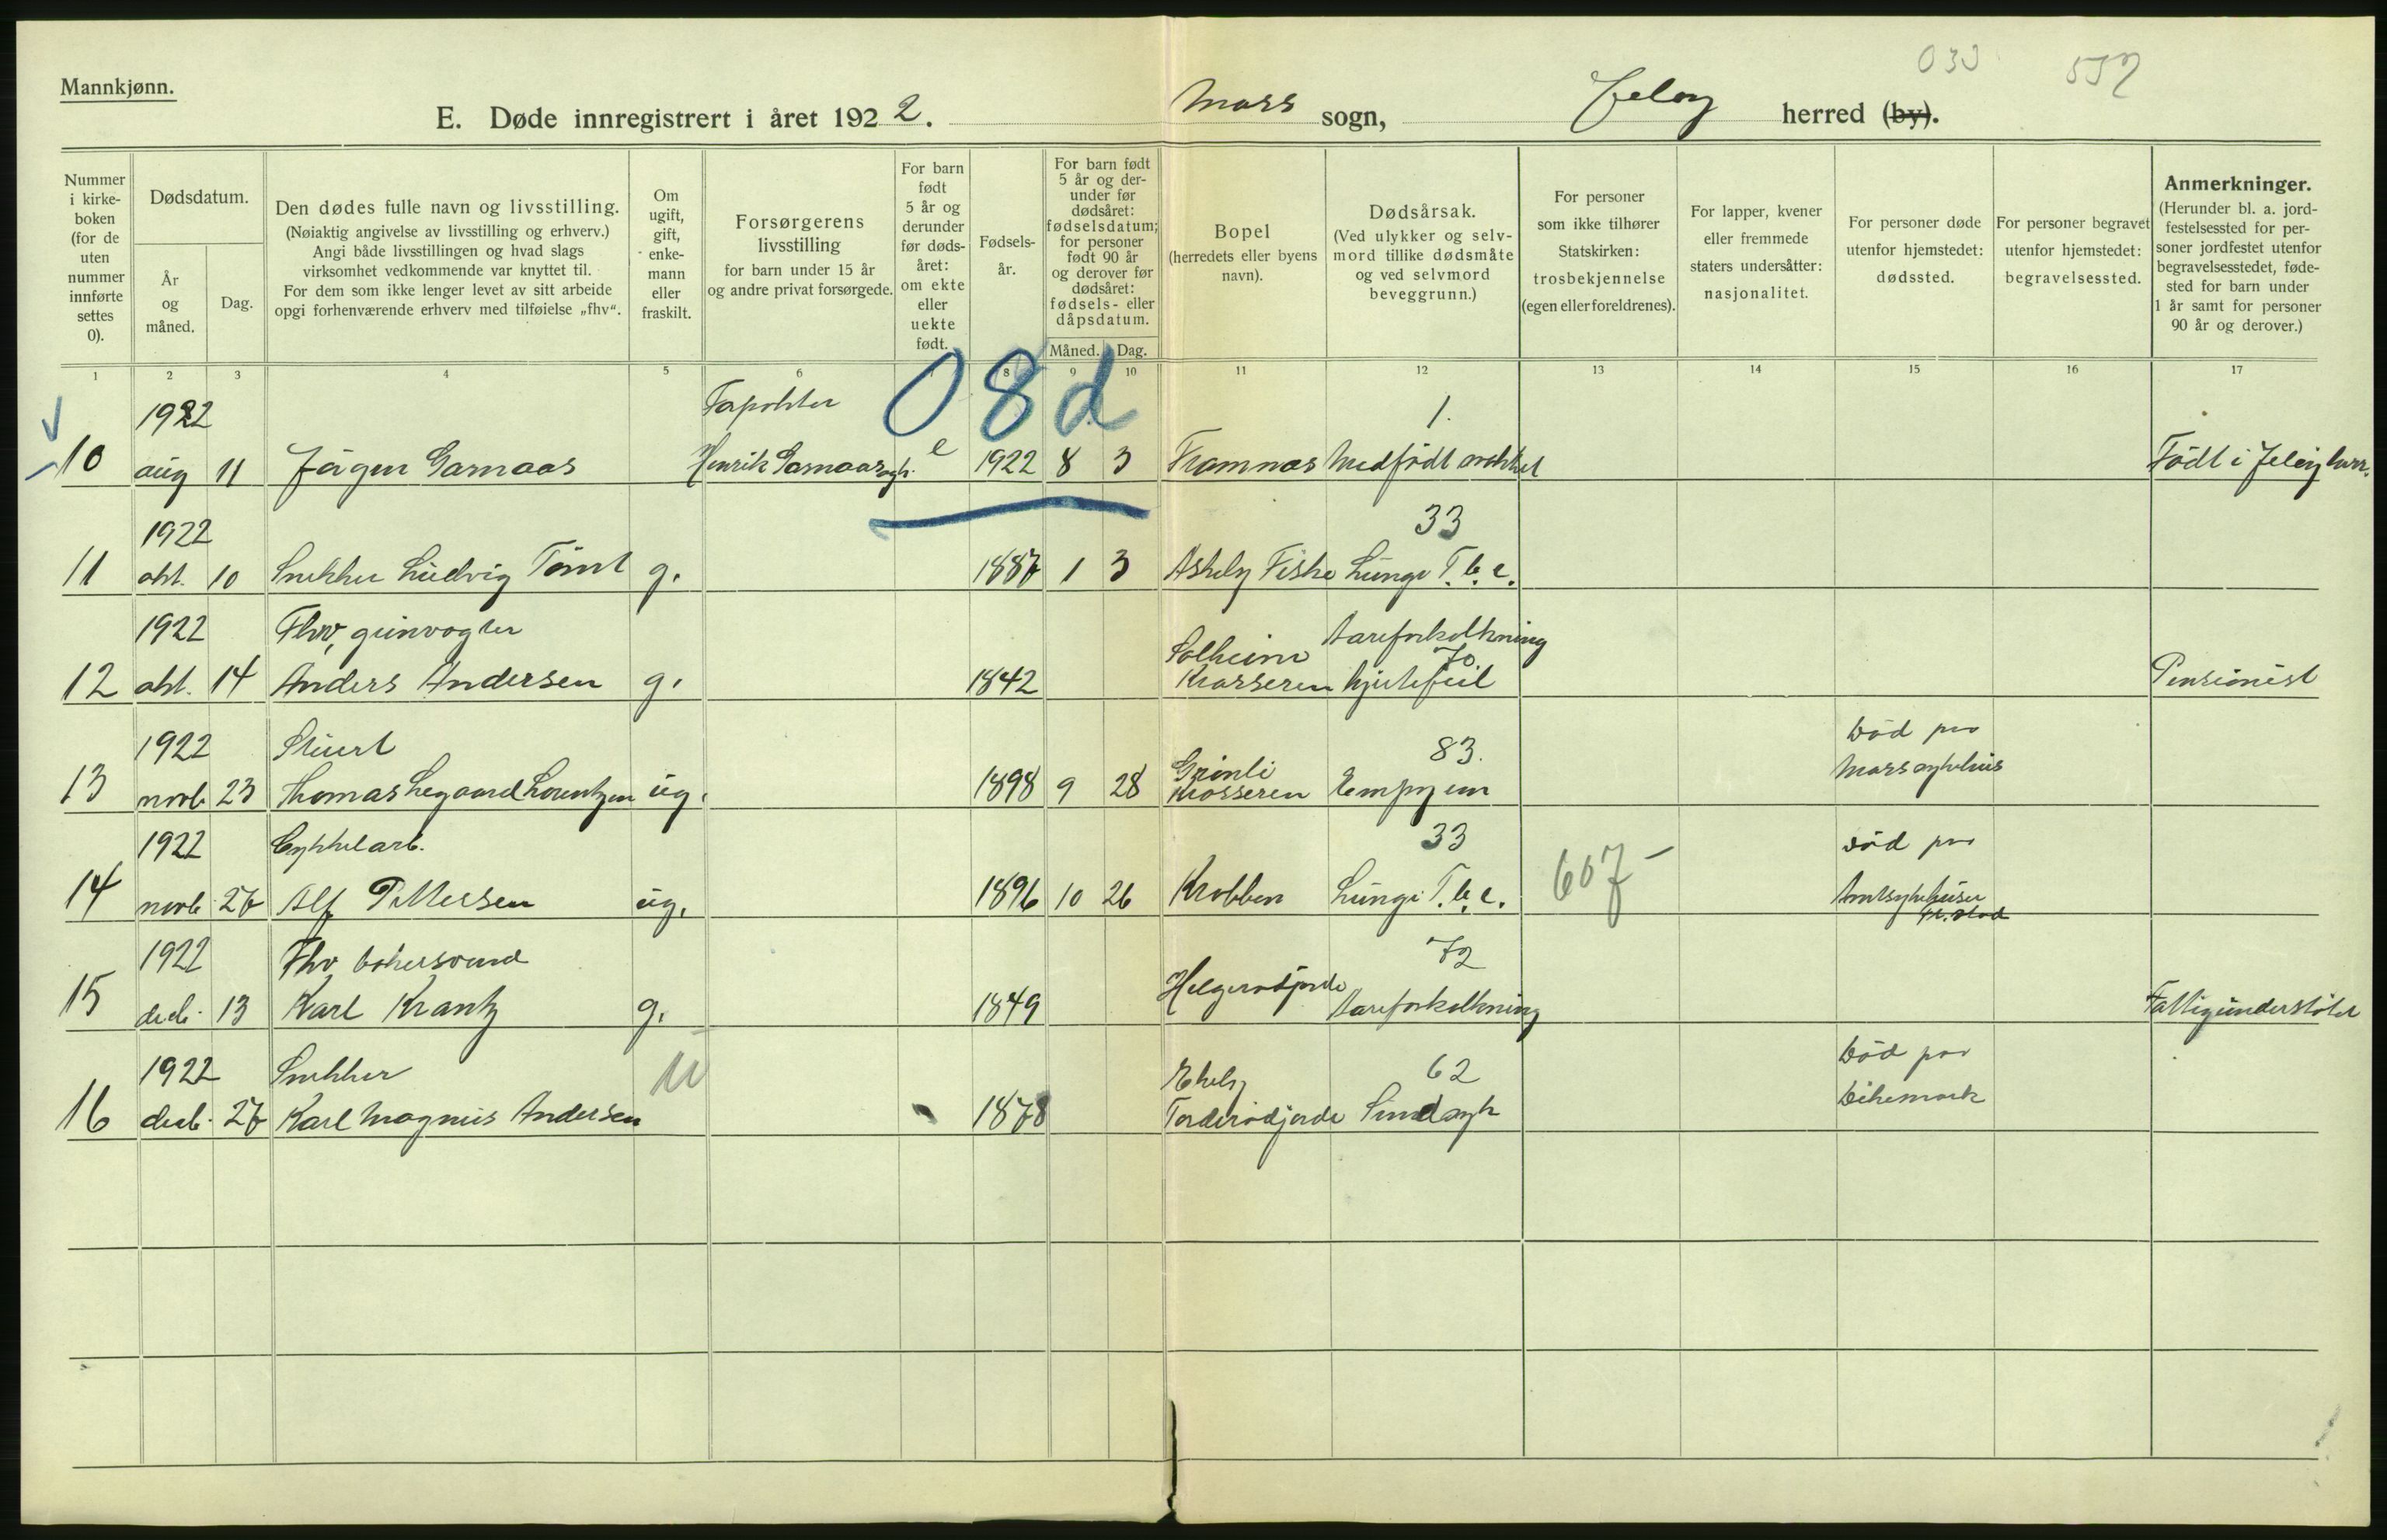 030 532
Mannkjønn.
E. Døde innregistrert i året 1922. Moss sogn, Jeløy herred (by).
Nummer i kirkeboken (for de uten nummer innførte settes 0).
Dødsdatum.
År og måned.
Dag.
Den dødes fulle navn og livsstilling.
(Nøiaktig angivelse av livsstilling og erhverv.)
Angi både livsstillingen og hvad slags
virksomhet vedkommende var knyttet til.
For dem som ikke lenger levet av sitt arbeide
opgi forhenværende erhverv med tilføielse „fhv“.
Om ugift, gift, enkemann eller fraskilt.
Forsørgerens livsstilling
for barn under 15 år
og andre privat forsørgede.
For barn født 5 år og derunder før dødsåret: om ekte eller uekte født.
Fødselsår.
For barn født 5 år og derunder før dødsåret: fødselsdatum; for personer født 90 år og derover før dødsåret: fødsels- eller dåpsdatum.
Måned. Dag.
Bopel
(herredets eller byens navn).
Dødsårsak.
(Ved ulykker og selvmord tillike dødsmåte og ved selvmord beveggrunn.)
For personer som ikke tilhører Statskirken: trosbekjennelse (egen eller foreldrenes).
For lapper, kvener eller fremmede staters undersåtter: nasjonalitet.
For personer døde utenfor hjemstedet: dødssted.
For personer begravet utenfor hjemstedet: begravelsessted.
Anmerkninger.
(Herunder bl. a. jordfestelsessted for personer jordfestet utenfor begravelsesstedet, fødested for barn under 1 år samt for personer 90 år og derover.)
1 2 3 4 5 6 7 8 9 10 11 12 13 14 15 16 17
08d
1922 1.
10 aug 11 Jørgen Garnaas Henrik Garnaas e 1922 8 3 Framnæs Medfødt svakhet Født i Jeløy herr.
1922 33
11 okt. 10 Snekker Ludvig Tømt g. 1887 1 3 Askely Fiske Lunge T.b.c.
1922 Fhv. Aareforkalkning
12 okt. 14 Anders Andersen g. 1842 Solheim Krosseren 70 hjertefeil Pensionist
1922 Stuert 83. Død paa
13 novb 23 Thomas Legaard Lorentzen ug. 1898 9 28 Grønli Krosseren Empyem Moss sykehus
1922 Cykkelarb. 33 død paa
14 novb 27 Alf Pettersen ug. 1896 10 26 Krobben Lunge T.b.c. 607- Amtsykehuset Fr.stad
1922 Fhv bøkersvend 72
15 decb. 13 Karl Krantz g. 1849 Helgerødjorde Aareforkalkning Fattigunderstøttet
1922 Snekker U 62 Død paa
16 decb. 27 Karl Magnus Andersen 1878 Ekely Torderødjorde Sindsyk Dikemark